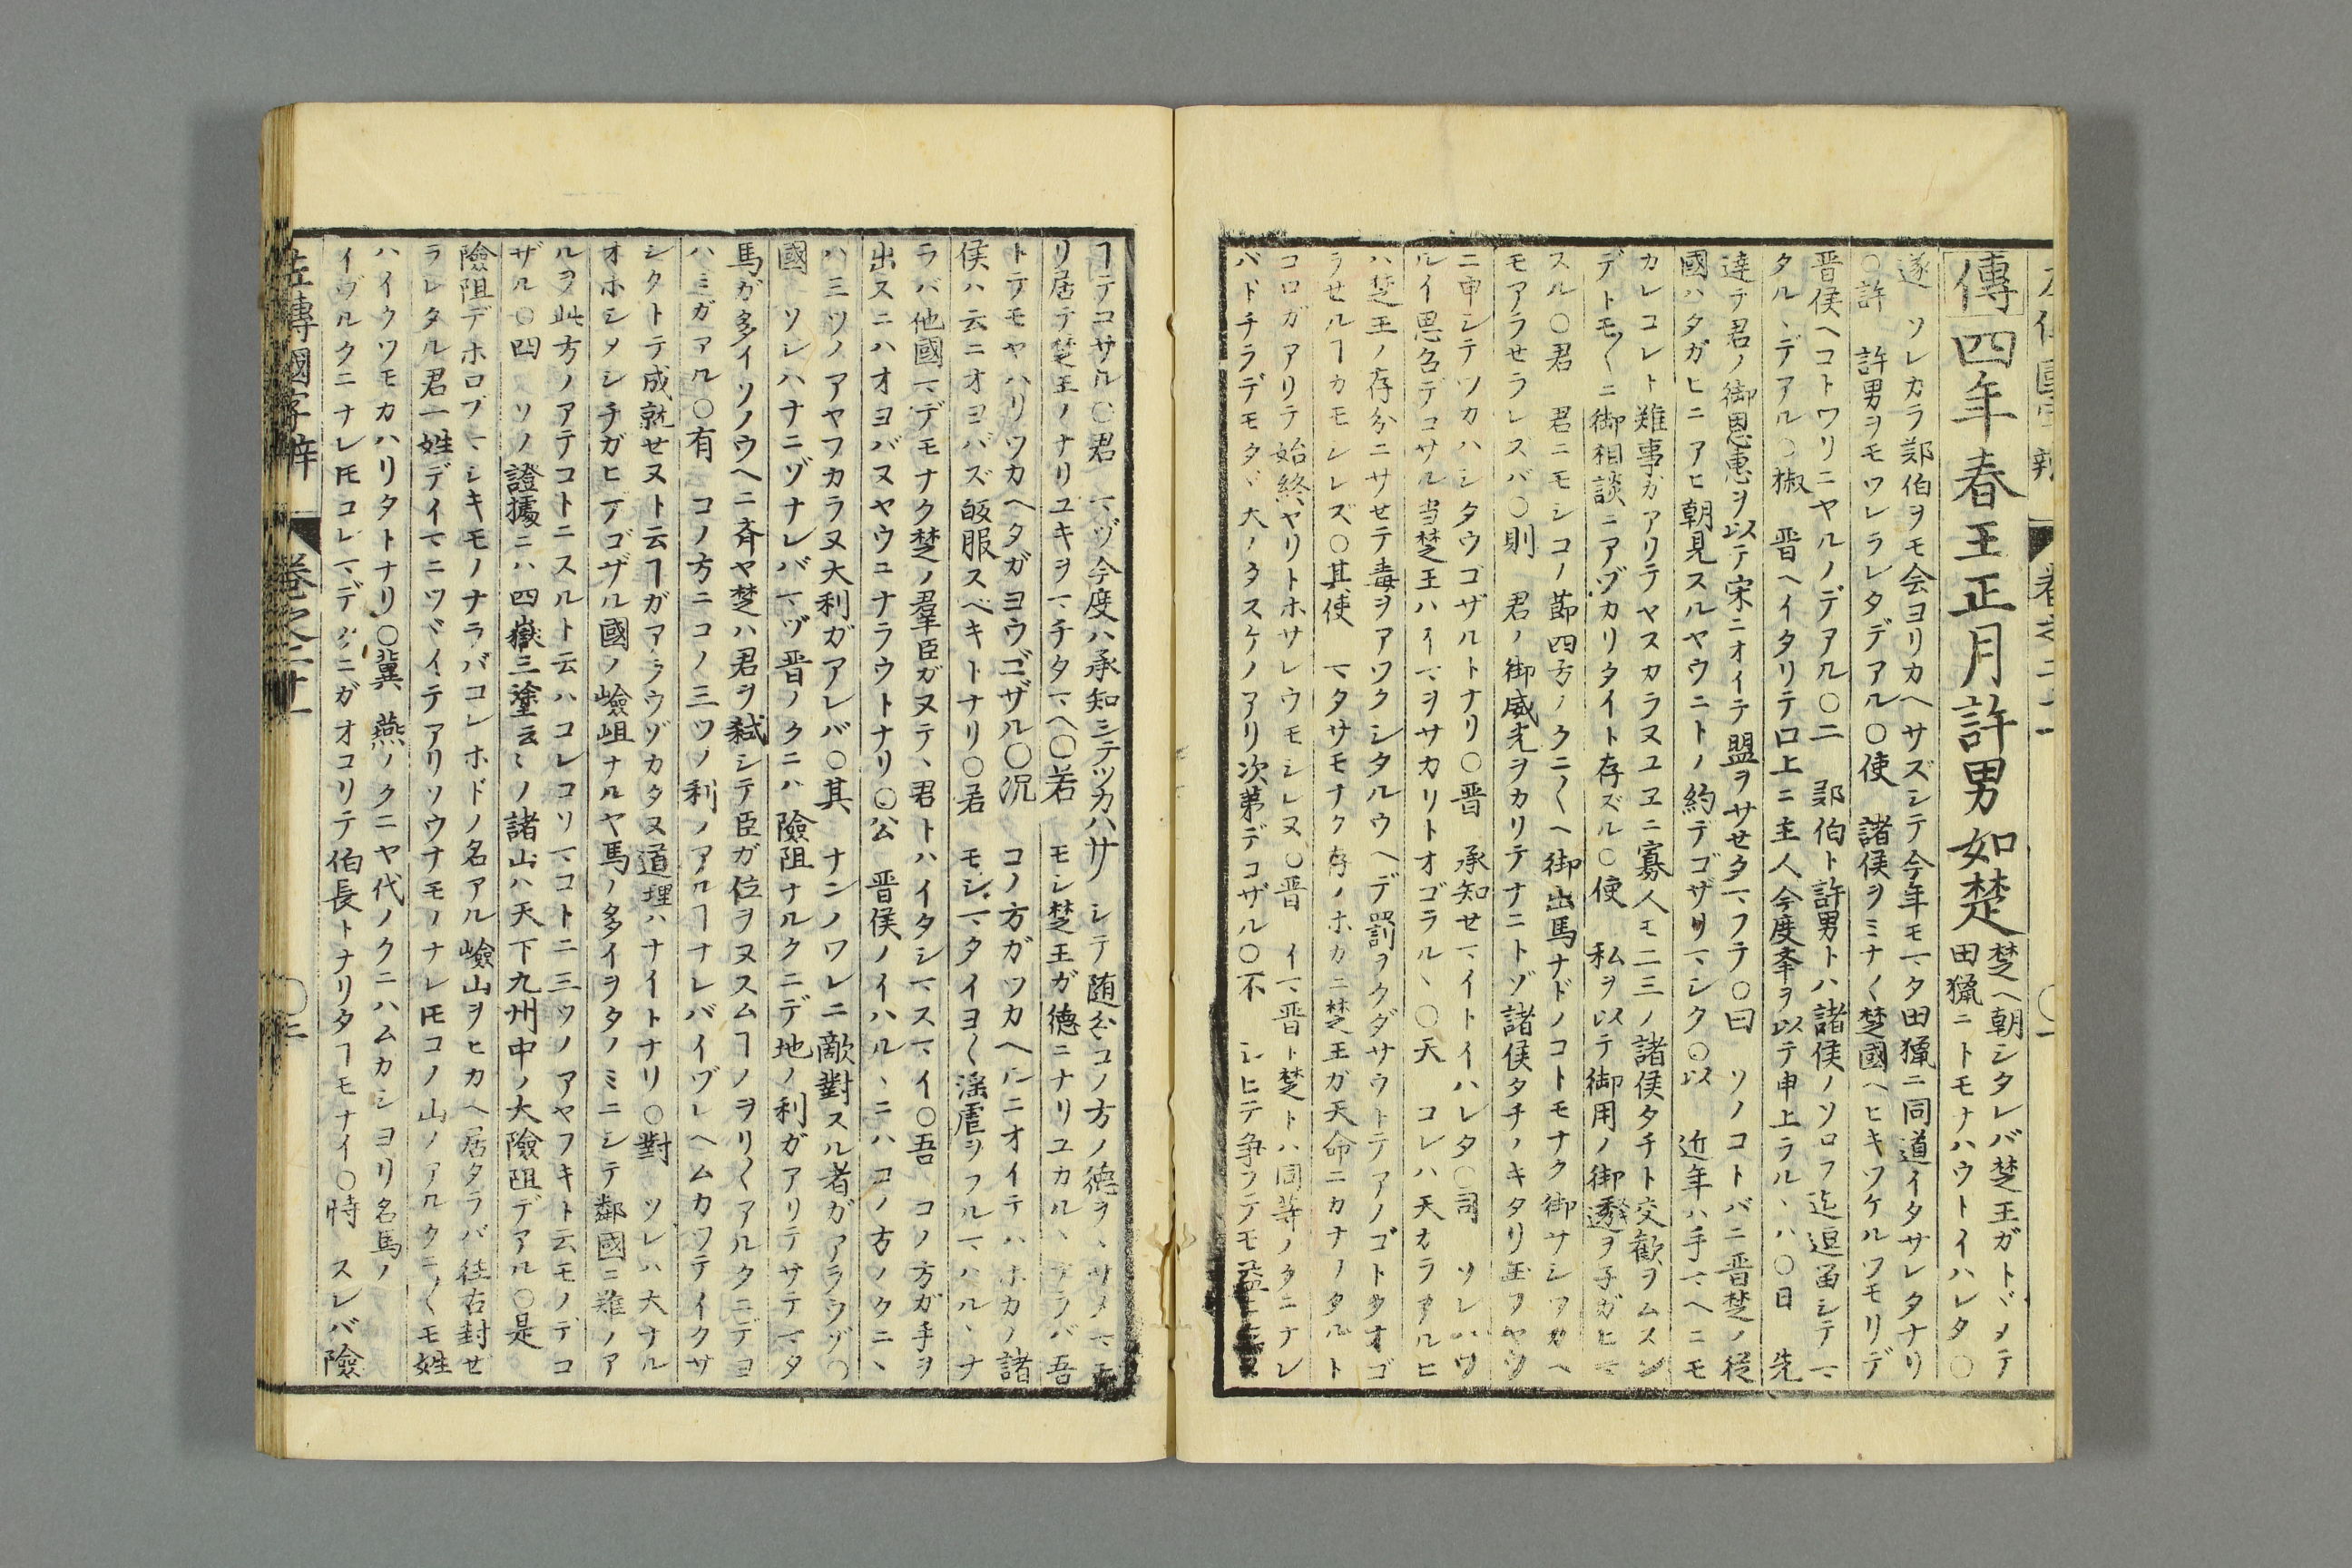 傳四年春王正月許男如楚
楚ヘ朝シタレバ楚王ガトヾメテ
田獵ニトモナハウトイハレタ○
遂　ソレカラ鄭伯ヲモ会ヨリカヘサズシテ今年モマタ田獵ニ同道イタサレタナリ
○許　許男ヲモワレラレタデアル○使　諸侯ヲミナ〱楚國ヘヒキツケルツモリデ
晋侯ヘコトワリニヤルノデアル○二　鄭伯ト許男トハ諸侯ノソロフ迄逗畄シテマ
タルヽデアル○椒　晋ヘイタリテ口上ニ主人今度挙ヲ以テ申上ラルヽハ○日　先
達テ君ノ御恩惠ヲ以テ宋ニオイテ盟ヲサセタマフテ○曰　ソノコトバニ晋楚ノ従
國ハタガヒニアヒ朝見スルヤウニトノ約デゴザリマシク○以　近年ハ手マヘニモ
カレコレト難事ガアリテヤスカラヌユヱニ寡人モ二三ノ諸侯タチト交歓ヲムスン
デトモ〱ニ御相談ニアヅカリタイト存ズル○使　私ヲ以テ御用ノ御透ヲ子ガヒマ
スル○君　君ニモシコノ節四方ノクニ〱ヘ御出馬ナドノコトモナク御サシツカヘ
モアラセラレズバ○則　君ノ御威光ヲカリテナニトゾ諸侯タチノキタリ玉フヤウ
ニ申シテツカハシタウゴザルトナリ○晋　承知セマイトイハレタ○司　ソレハワ
ルイ思召デコサル当楚王ハイマヲサカリトオゴラルヽ○天　コレハ天カラアルヒ
ハ楚王ノ存分ニサセテ毒ヲアツクシタルウヘデ罸ヲクダサウトテアノゴトクオゴ
ラセルヿカモシレズ○其使　マタサモナク存ノホカニ楚王ガ天命ニカナノタルト
コロガアリテ始終ヤリトホサレウモシレヌ○晋　イマ晋ト楚トハ同等ノクニナレ
バドチラデモタヾ天ノタスケノアリ次第デコザル○不　シヒテ争フテモ益ニ立ヌ
ヿテコサル○君　マヅ今度ハ承知シテツカハサ　シテ随分コノ方ノ徳ヲ
リ居テ楚王ノナリユキヲマチタマヘ○若　モシ楚王ガ徳ニナリユカルヽナラバ吾
トテモヤハリツカヘタガヨウゴザル○況　コノ方ガツカヘルニオイテハホカノ諸
侯ハ云ニオヨバズ皈服スベキトナリ○若　モシマタイヨ〱滛虐ヲフルマハルヽナ
ラバ他國マデモナク楚ノ羣臣ガステヽ君トハイタシマスマイ○吾　コノ方ガ手ヲ
出スニハオヨバヌヤウニナラウトナリ○公　晋侯ノイハルヽニハコノ方ノクニヽ
ハ三ツノアヤフカラヌ大利ガアレバ○其　ナンノワレニ敵對スル者ガアラウヅ○
國　ソレハナニゾナレバマヅ晋ノクニハ險阻ナルクニデ地ノ利ガアリテサテマタ
馬ガ多イソノウヘニ斉ヤ楚ハ君ヲ弑シテ臣ガ位ヲヌスムヿノヲリ〱アルクニデヨ
ハミガアル○有　コノ方ニコノ三ツノ利ノアルヿナレバイヅレヘムカツテイクサ
シタトテ成就セヌト云ヿガアラウゾカタヌ道理ハナイトナリ○對　ソレハ大ナル
オホシメシチガヒデゴザル國ノ嶮岨ナルヤ馬ノ多イヲタノミニシテ鄰國ニ難ノア
ルヲ此方ノアテコトニスルト云ハコレコソマコトニ三ツノアヤフキト云モノデコ
ザル○四　ソノ證據ニハ四嶽三塗云〻ノ諸山ハ天下九州中ノ大險阻デアル○是
險阻デホロブマシキモノナラバコレホドノ名アル嶮山ヲヒカヘ居タラバ徃古封ゼ
ラレタル君一姓デイマニツヾイテアリソウナモノナレ𪜈コノ山ノアルクニ〱モ姓
ハイクツモカハリタトナリ○冀　燕ノクニヤ代ノクニハムカシヨリ名馬ノ
イヅルクニナレ𪜈コレマデクニガオコリテ伯長トナリタヿモナイ○時　スレバ險
左傳國字辯　卷之二十一　○二